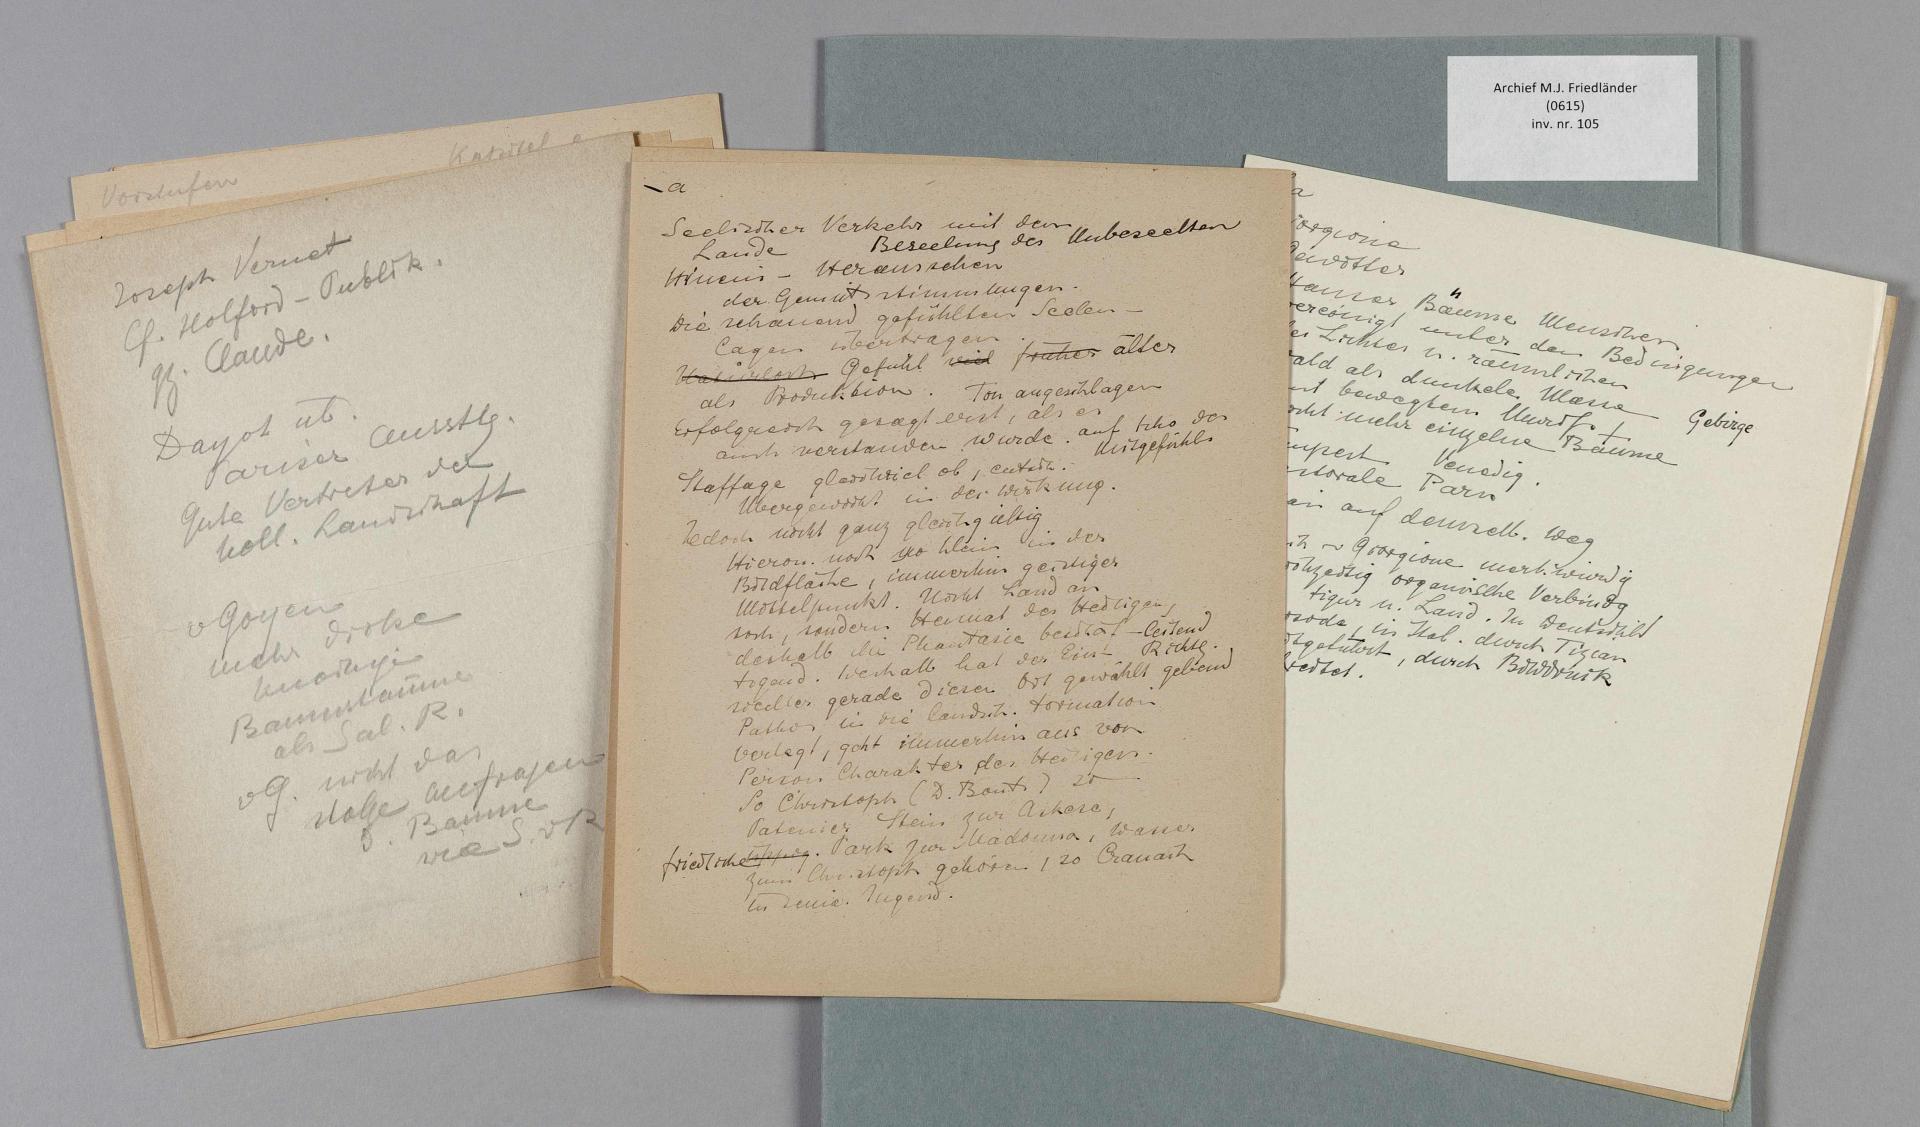 Archief M.J. Friedländer
(0615)
inv. nr. 105
Vorstufen
Joseph Vernet
Cf. Holford – Publik.
gz. Claude.
Dayot üb.
Pariser Ausstlg.
Gute Vertreter der
holl. Landschaft
v Goyen
mehr dicke
knorrige
Baumstämme
als Sal. R.
v G. nicht das
stolze aufragen
d. Bäume
wie S. v R
a
Seelischer Verkehr mit dem
Lande Beseelung des Unbeseelten
Hinein – Heraussehen
der Gemütsstimmungen.
Die schauend gefühlten Seelen –
Lagen übertragen.
Gefühl viel früher älter
als Produktion. Ton angeschlagen
Erfolgreich gesagt erst, als es
auch verstanden wurde. auf Echo des
Mitgefühls
Staffage gleichviel ob, entsch.
Übergewicht in der Wirkung.
Jedoch nicht ganz gleichgiltig
Hieron. noch so klein in der
Bildfläche, immerhin geistiger
Mittelpunkt. Nicht Land an
sich, sondern Heimat des Heiligen,
deshalb die Phantasie leitend
irgend. Weshalb hat der Einsiedler gerade diesen Ort gewählt
Richtg. gebend
Pathos in die landsch. Formation
verlegt, geht immerhin aus von
Person Charakter des Heiligen.
So Christoph (D. Bouts) so
Patenier Stein zur Askese,
friedliche Park zur Madonna, Wasser
zum Christoph gehören, so Cranach
in seine. Jugend.
a
iorgione
Gewitter
Häuser, Bäume Menschen
vereinigt unter den Bedingungen
des Lichtes u. räumlichen
Wald als dunkele Masse Gebirge
mit bewegtem Umriss
nicht mehr einzelne Bäume
Tempest Venedig.
Pastorale Paris
auf demselb. Weg
Giorgione merkwürdig
gleichzeitig organische Verbindg
Figur u. Land. In Deutschld
in Ital. durch Tizian
fortgeführt, durch Bilddruck